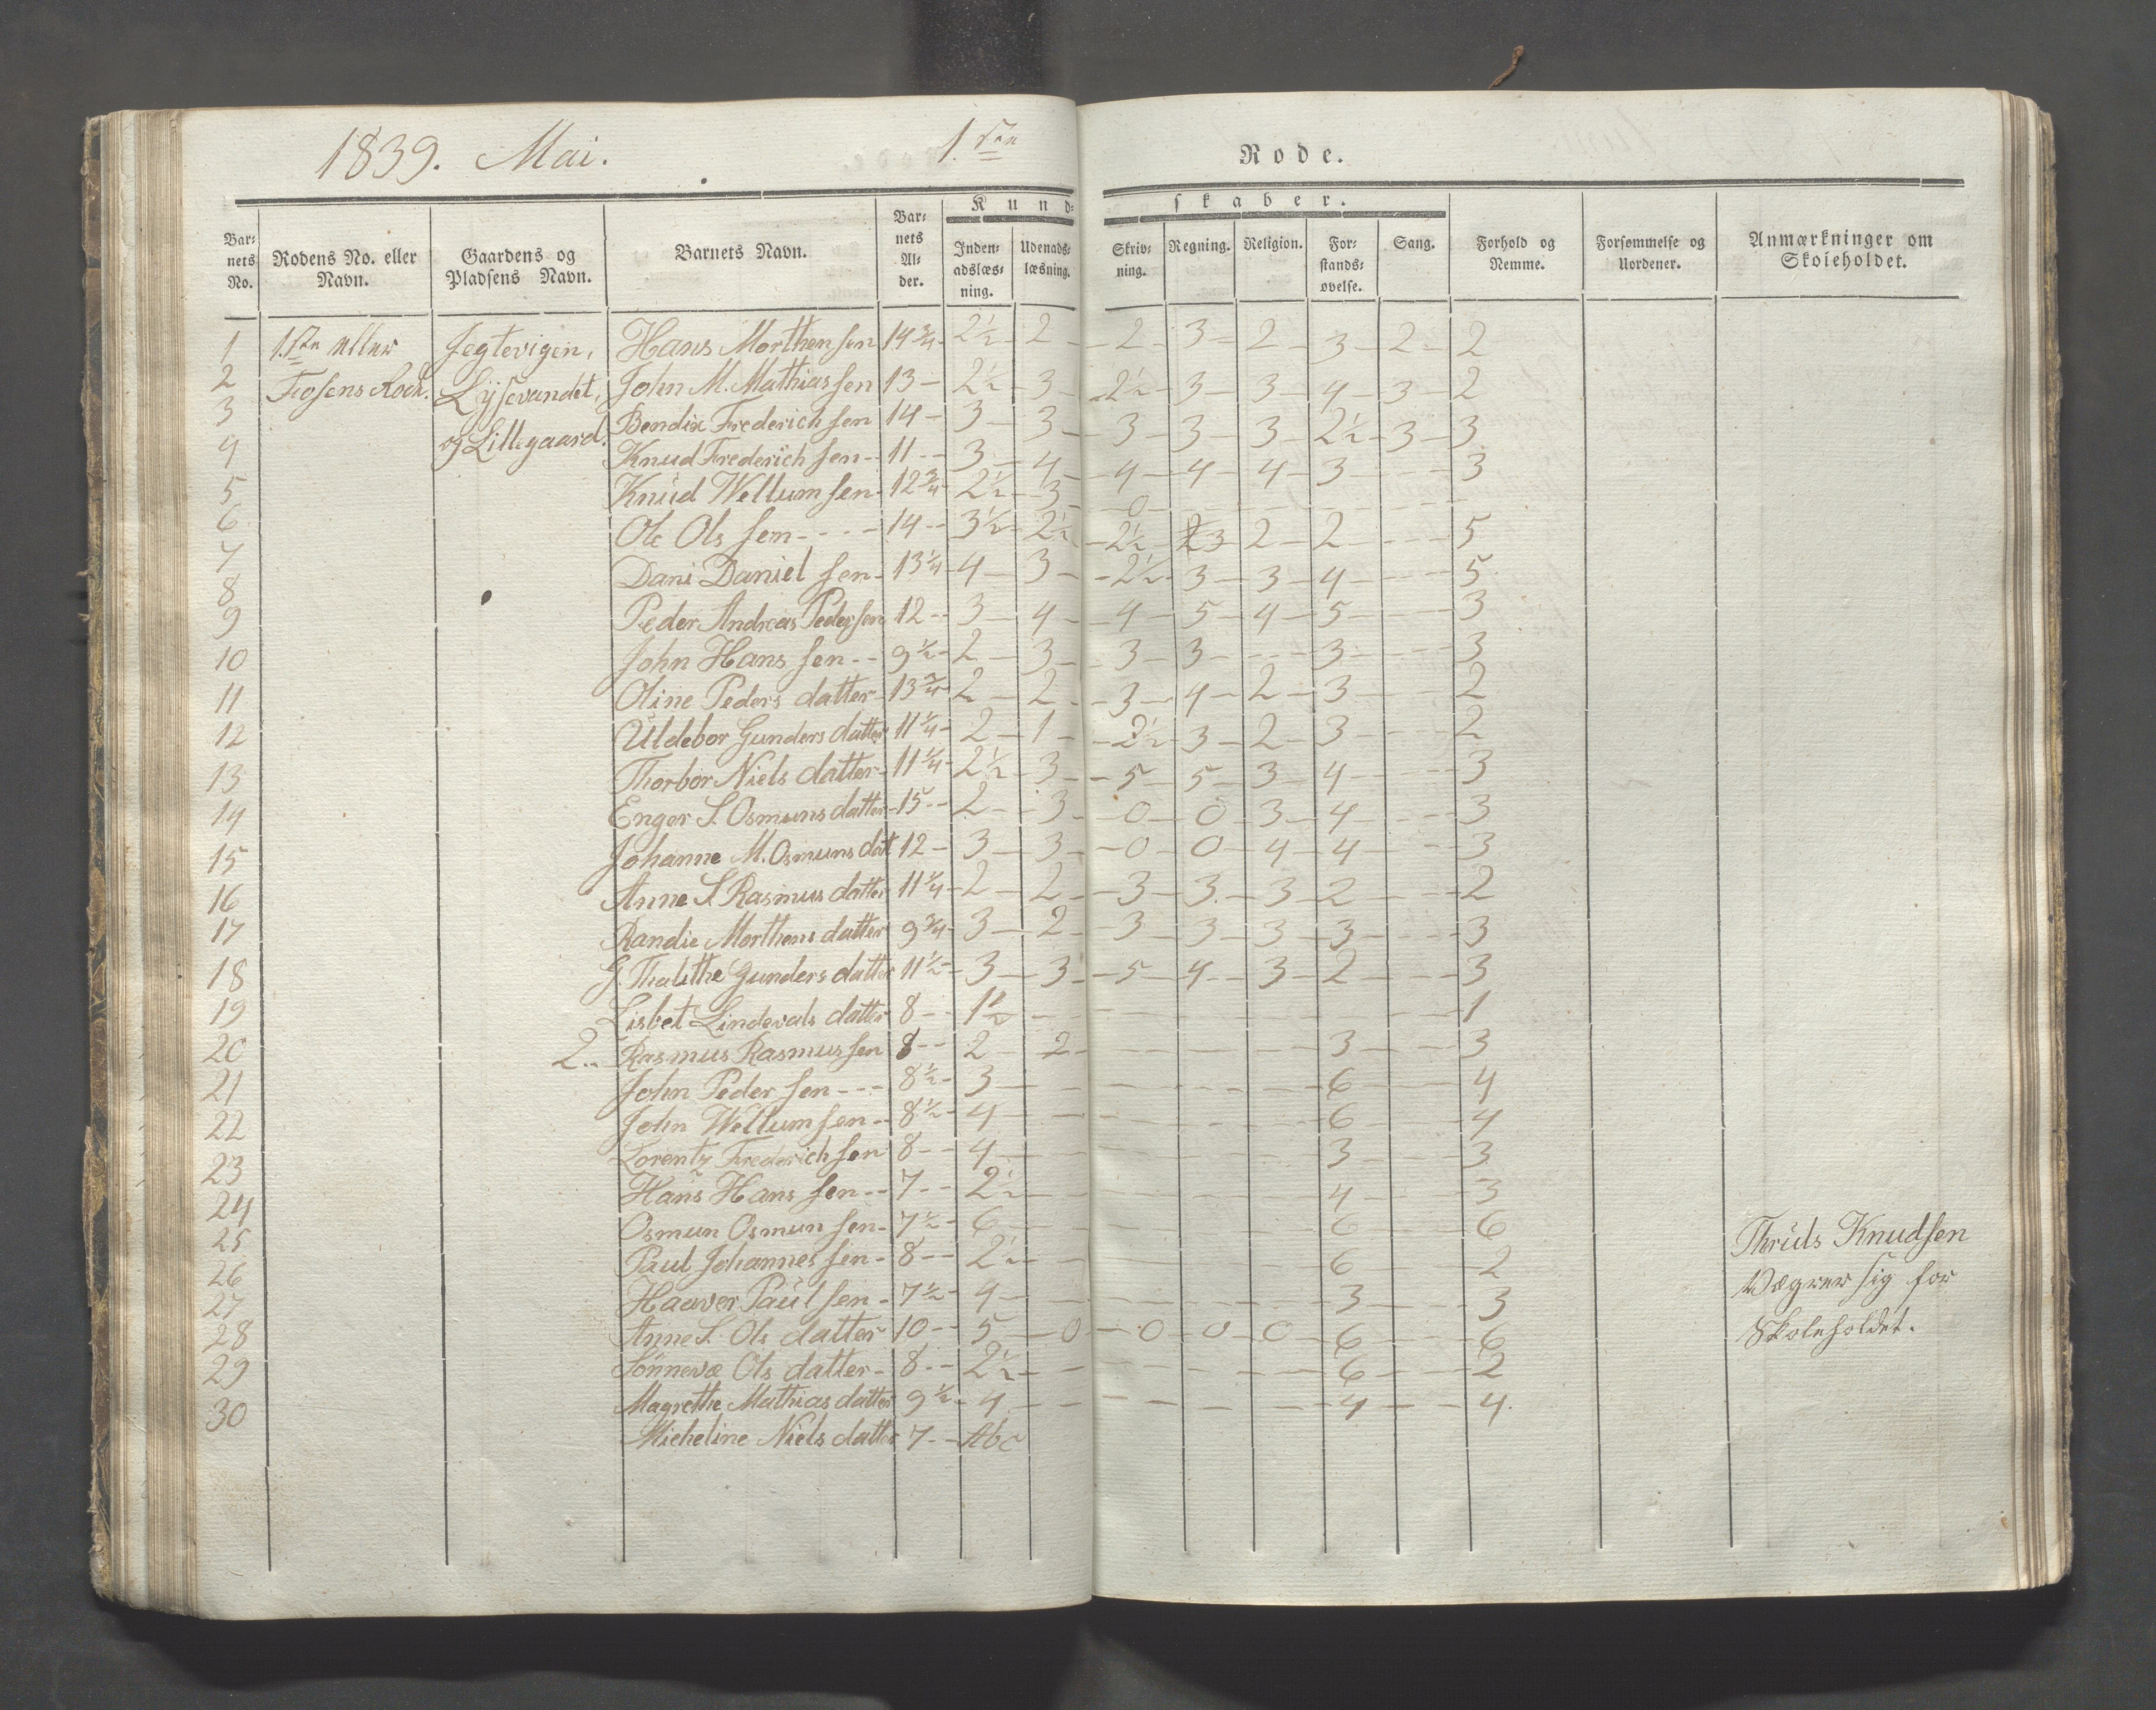 1839. Mai. 1.ste Rode.
Kund- skaber.
Bar- nets No. Rodens No. eller Navn. Gaardens og Pladsens Navn. Barnets Navn. Bar- nets Al- der. Inden- adslæs- ning. Udenads- læsning. Skriv- ning. Regning. Religion. For- stands- øvelse. Sang. Forhold og Nemme. Forsømmelse og Uordener. Anmærkninger om Skoleholdet.
1 1.ste eller Jegtevigen, Hans Morthensen 14 3/4 - 2 1/2 - 2 - 2 - 3 - 2 - 3 - 2 - 2
2 Fosens Rode. Lysevandet, John M. Mathiassen 13 - 2 1/2 - 3 - 2 1/2 - 3 - 3 - 4 - 3 - 2
3 og Lillegaard. Bendix Frederichsen 14 - 3 - 3 - 3 - 3 - 3 - 2 1/2 - 3 - 3
4 Knud Frederichsen - 11 - 3 - 4 - 4 - 4 - 4 - 3 - - 3
5 Knud Wellumsen - 12 3/4 - 2 1/2 - 3 - 0 - - -
6 Ole Ols sen - - - 14 - 3 1/2 - 2 1/2 - 2 1/2 - 2 3 - 2 - 2 - - 5
7 Dani Daniel sen - 13 1/4 - 4 - 3 - 2 1/2 - 3 - 3 - 4 - - 5
8 Peder Andreas Pedersen 12 - 3 - 4 - 4 - 5 - 4 - 5 - - 3
9 John Hans sen - - 9 1/2 - 2 - 3 - 3 - 3 - - 3 - - 3
10 Oline Peders datter - 13 3/4 - 2 - 2 - 3 - 4 - 2 - 3 - - 2
11 Uldebor Gunders datter 11 1/4 - 2 - 1 - 2 1/2 - 3 - 2 - 3 - - 2
12 Thorbor Niels datter - 11 1/4 - 2 1/2 - 3 - 5 - 5 - 3 - 4 - - 3
13 Enger S. Osmuns datter - 15 - - 2 - 3 - 0 - 0 - 3 - 4 - - 3
14 Johanne M. Osmuns dat 12 - 3 - 3 - 0 - 0 - 4 - 4 - - 3
15 Anne S. Rasmus datter 11 1/4 - 2 - 2 - 3 - 3 - 3 - 2 - - 2
16 Randie Morthens datter 9 3/4 - 3 - 2 - 3 - 3 - 3 - 3 - - 3
17 G. Thalithe Gunders datter 11 1/2 - 3 - 3 - 5 - 4 - 3 - 2 - - 3
18 Lisbet Lindevals datter 8 - 1 1/2 - - - - 1
19 2.. Rasmus Rasmussen 8 - - 2 - 2 - - - 3 - - 3
20 John Peder sen - - - 8 1/2 - 3 - - - 6 - - 4
21 John Wellumsen - - 8 1/2 - 4 - - - 6 - - 4
22 Lorentz Frederichsen 8 - - 4 - - - 3 - - 3
23 Hans Hans sen - - 7 - - 2 1/2 - - - 4 - - 3
24 Osmun Osmun sen - 7 1/2 - 6 - - - 6 - - 6
25 Paul Johannes sen - 8 - - 2 1/2 - - - 6 - - 2
26 Haaver Paul sen - 7 1/2 - 4 - - - 3 - - 3
27 Anne S. Ols datter 10 - - 5 - 0 - 0 - 0 - 0 - 6 - - 6
28 Sonneva Ols datter - 8 - - 2 1/2 - - - 6 - - 2
29 Magrethe Mathias datter 9 1/2 - 4 - - - 4 - - 4.
30 Micheline Niels datter 7 - - Abc
Thruls Knudsen
Vægrer sig for
Skoleholdet.